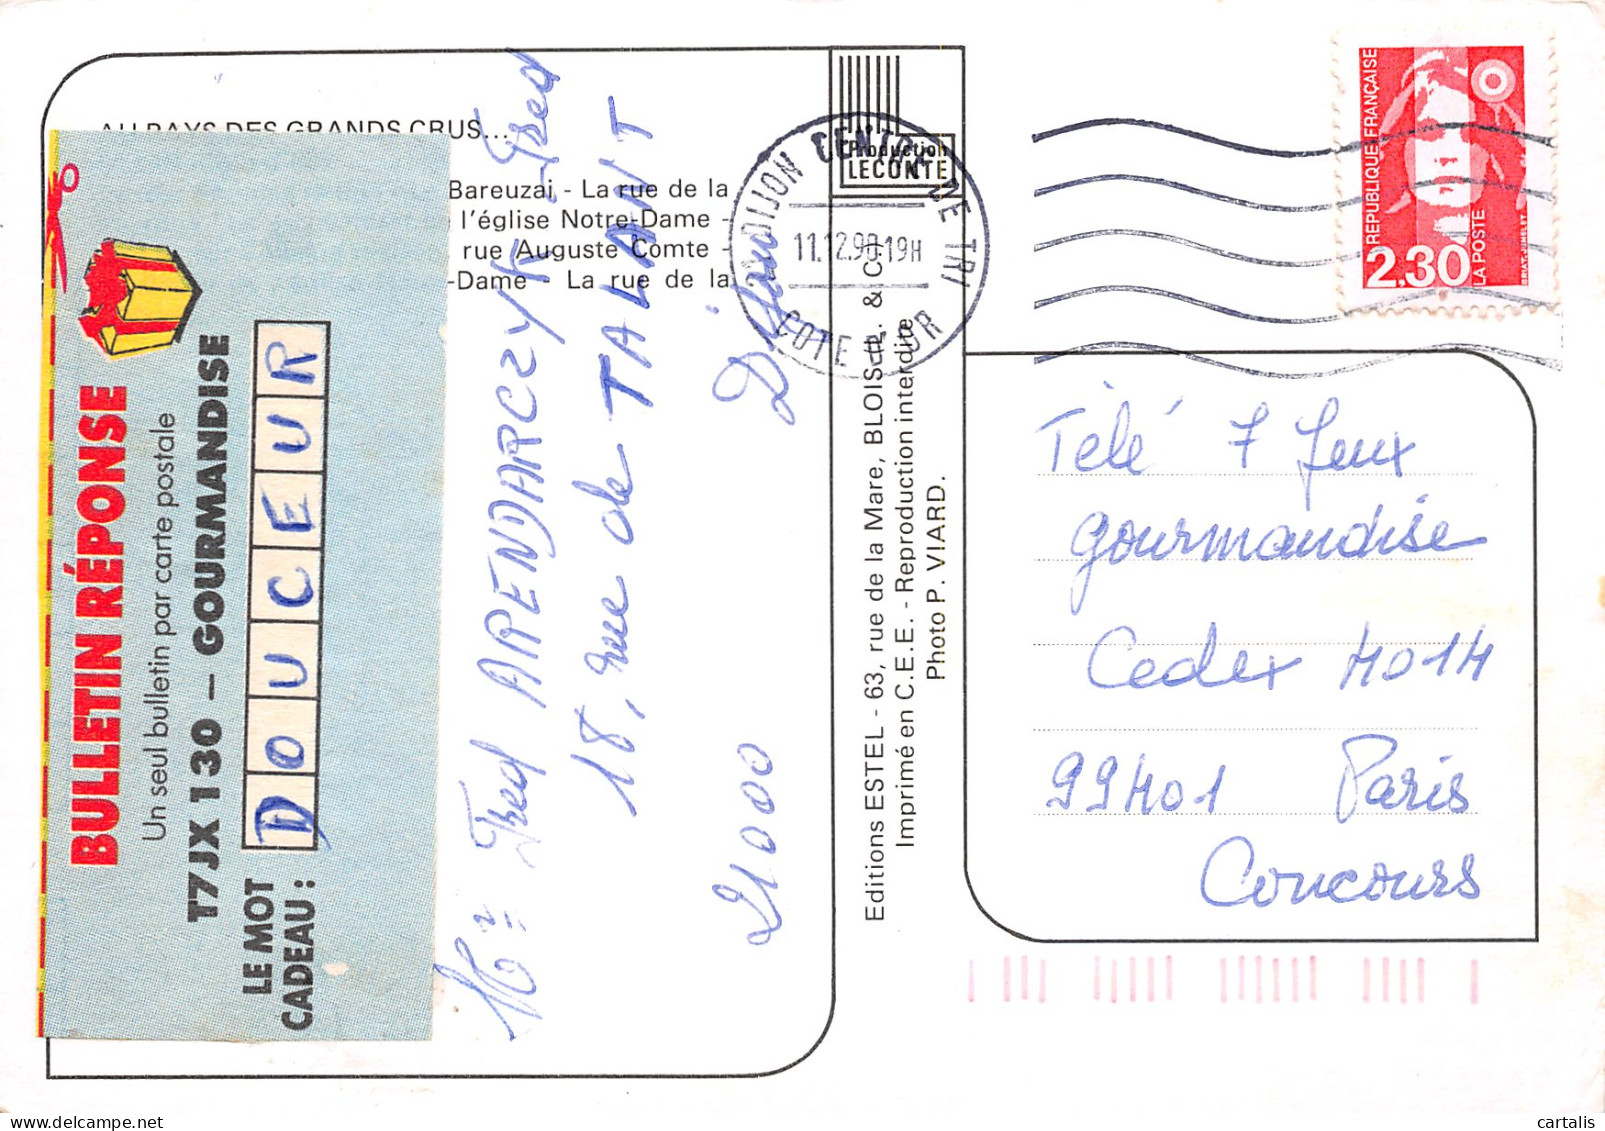 AU PAYS DES GRANDS CRUS...
Bareuzai - La rue de la
l'église Notre-Dame -
rue Auguste Comte -
-Dame - La rue de la
BULLETIN RÉPONSE
Un seul bulletin par carte postale
T7JX 130 – GOURMANDISE
LE MOT
CADEAU :
DOUCEUR
Fred ARENDARCZYK Fred
18, rue de TALANT
21000 Dijon
Production
LECONTE
DIJON CENTRE DE TRI
11.12.90 19H
COTE D'OR
Editions ESTEL - 63, rue de la Mare, BLOIS
Imprimé en C.E.E. - Reproduction interdite
Photo P. VIARD.
REPUBLIQUE FRANÇAISE
2.30
LA POSTE
Télé 7 Jeux
gourmandise
Cedex 4014
99401 Paris
Concours
cartalis